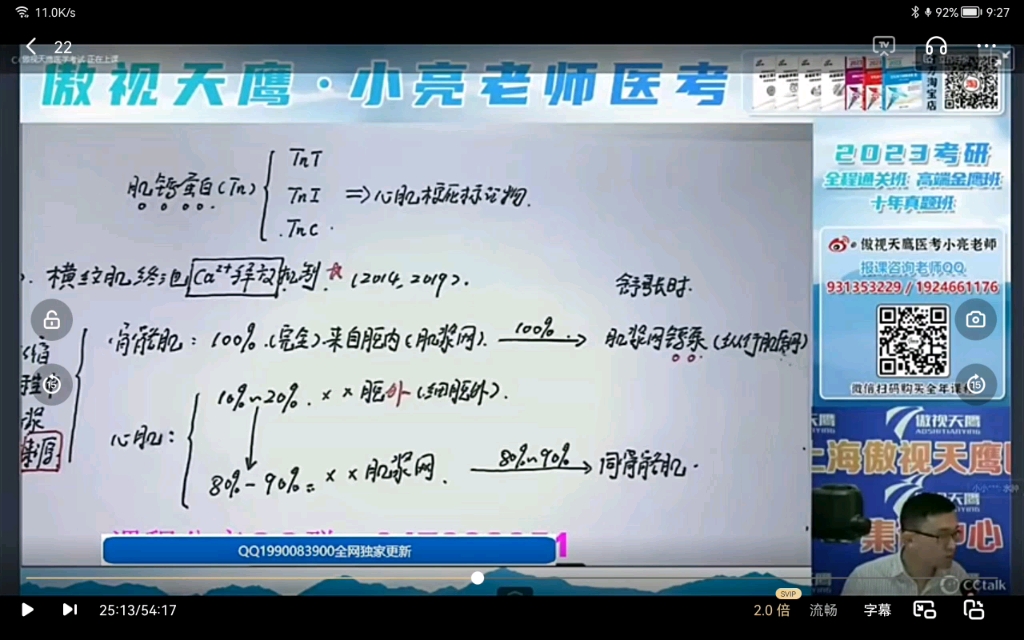 11.0K/s
92%
9:27
22
傲视天鹰医学考试 正在上课
傲视天鹰·小亮老师医考
淘宝店
肌钙蛋白(Tn)
TnT
TnI
TnC
⇒心肌坏死标志物.
横纹肌终池Ca²⁺释放机制.☆(2014,2019).
舒张时.
骨骼肌: 100%.(完全)来自胞内(肌浆网).
100%
肌浆网钙泵(纵行肌质网)
10%~20%. × × 胞外(细胞外).
心肌:
80%-90% = × × 肌浆网.
80%~90%
同骨骼肌.
缩
浆
2023考研
全程通关班 高端金鹰班
十年真题班
傲视天鹰医考小亮老师
报课咨询老师QQ
931353229 / 1924661176
微信扫码购买全年课程
傲视天鹰
AOSHITIANYING
上海傲视天鹰
傲视天鹰
集 中心
QQ1990083900全网独家更新
CCtalk
25:13/54:17
SVIP
2.0 倍
流畅
字幕